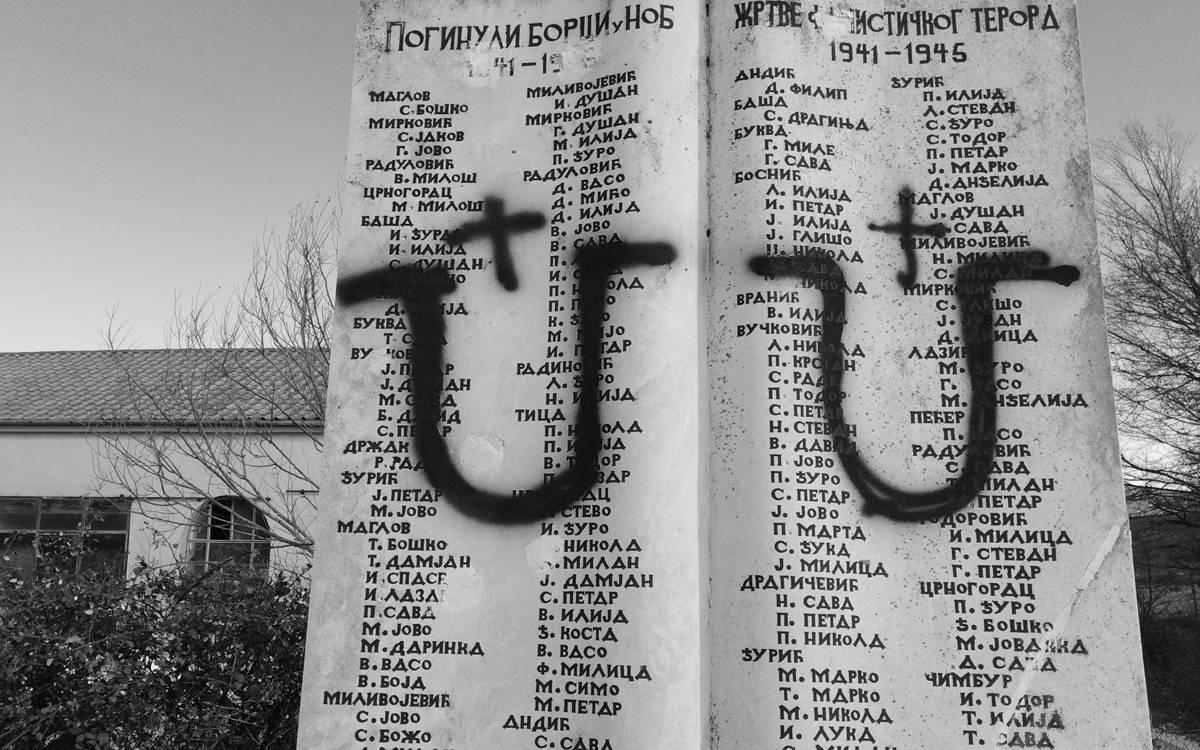 ПОГИНУЛИ БОРЦИ У НОБ
МАГЛОВ
С. БОШКО
МИРКОВИЋ
С. ЈАКОВ
Г. ЈОВО
РАДУЛОВИЋ
В. МИЛОШ
ЦРНОГОРАЦ
М. МИЛОШ
БАША
И. ЂУРА
И. ИЛИЈА
С. ДУШАН
БУКВА
Ј. ПЕТАР
Ј. ДУШАН
М. САВА
Б. ДАВИД
С. ПЕТАР
ДРЖАК
Р. РАДЕ
ЂУРИЋ
Ј. ПЕТАР
М. ЈОВО
МАГЛОВ
Т. БОШКО
Т. ДАМЈАН
И. СПАСЕ
И. ЛАЗАР
П. САВА
М. ЈОВО
М. ДАРИНКА
В. ВАСО
В. БОЈА
МИЛИВОЈЕВИЋ
С. ЈОВО
С. БОЖО
МИЛИВОЈЕВИЋ
И. ДУШАН
МИРКОВИЋ
Г. ДУШАН
М. ИЛИЈА
П. ЂУРО
РАДУЛОВИЋ
Д. ВАСО
Д. МИЋО
Д. ИЛИЈА
В. ЈОВО
В. САВА
П. НИКОЛА
И. ПЕТАР
РАДИНОВИЋ
Л. ЂУРО
Н. ИЛИЈА
ТИЦА
П. НИКОЛА
П. ИЛИЈА
В. ТОДОР
ЛАЗАР
ЦРНОГОРАЦ
СТЕВО
И. ЂУРО
НИКОЛА
МИЛАН
Ј. ДАМЈАН
С. ПЕТАР
В. ИЛИЈА
Ђ. КОСТА
В. ВАСО
Ф. МИЛИЦА
М. СИМО
М. ПЕТАР
АНДИЋ
С. САВА
ЖРТВЕ ТЕРОРА
1941-1945
АНДИЋ
Д. ФИЛИП
БАША
С. ДРАГИЊА
БУКВА
Г. МИЛЕ
Г. САВА
БОСНИЋ
Л. ИЛИЈА
И. ПЕТАР
Ј. ИЛИЈА
Ј. ГЛИШО
НИКОЛА
САВА
НИКОЛА
ВРАНИЋ
В. ИЛИЈА
ВУЧКОВИЋ
Л. НИКОЛА
П. КРСТАН
С. РАДЕ
П. ТОДОР
С. ПЕТАР
Н. СТЕВАН
В. ДАВИД
П. ЈОВО
П. ЂУРО
С. ПЕТАР
Ј. ЈОВО
П. МАРТА
С. ЂУКА
Ј. МИЛИЦА
ДРАГИЧЕВИЋ
Н. САВА
П. ПЕТАР
П. НИКОЛА
ЂУРИЋ
М. МАРКО
Т. МАРКО
М. НИКОЛА
И. ЛУКА
С. МИЛАН
ЂУРИЋ
П. ИЛИЈА
Л. СТЕВАН
С. ЂУРО
С. ТОДОР
П. ПЕТАР
Ј. МАРКО
Д. АНЂЕЛИЈА
МАГЛОВ
Ј. ДУШАН
САВА
МИЛИВОЈЕВИЋ
Н. МИЛИЦА
С. МИЛАН
МИРКОВИЋ
С. ГЛИШО
Ј. ЈОВАН
ЛАЗИЋ
М. ЂУРО
Г. ВАСО
М. АНЂЕЛИЈА
ПЕЋЕР
П. ВАСО
РАДУЛОВИЋ
С. САВА
МИЛАН
ПЕТАР
ТОДОРОВИЋ
И. МИЛИЦА
Г. СТЕВАН
Г. ПЕТАР
ЦРНОГОРАЦ
П. ЂУРО
Ђ. БОШКО
М. ЈОВАНКА
Д. САВА
ЧИМБУР
И. ТОДОР
Т. ИЛИЈА
Т. САВА
U U